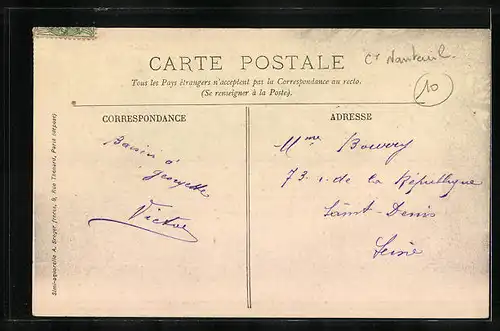 CARTE POSTALE
Tous les Pays étrangers n'acceptent pas la Correspondance au recto.
(Se renseigner à la Poste).
Cn Nanteuil.
10
CORRESPONDANCE
ADRESSE
à
Georgette
Victor
Mme
73 r. de la République
Saint-Denis
Seine
Simi-aquarelle A. Breger frères, 9, Rue Thénard, Paris (déposé)